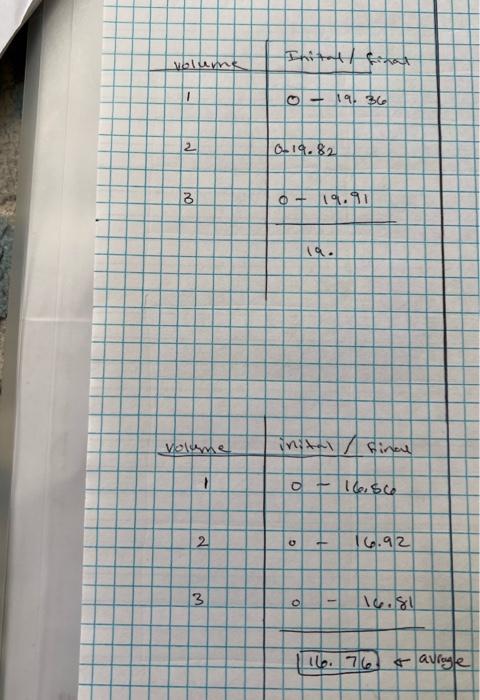 volume Inital / final
1 0 - 19.36
2 0-19.82
3 0 - 19.91
19.
volume inital / final
1 0 - 16.56
2 0 - 16.92
3 0 - 16.81
16.76 ← avrage